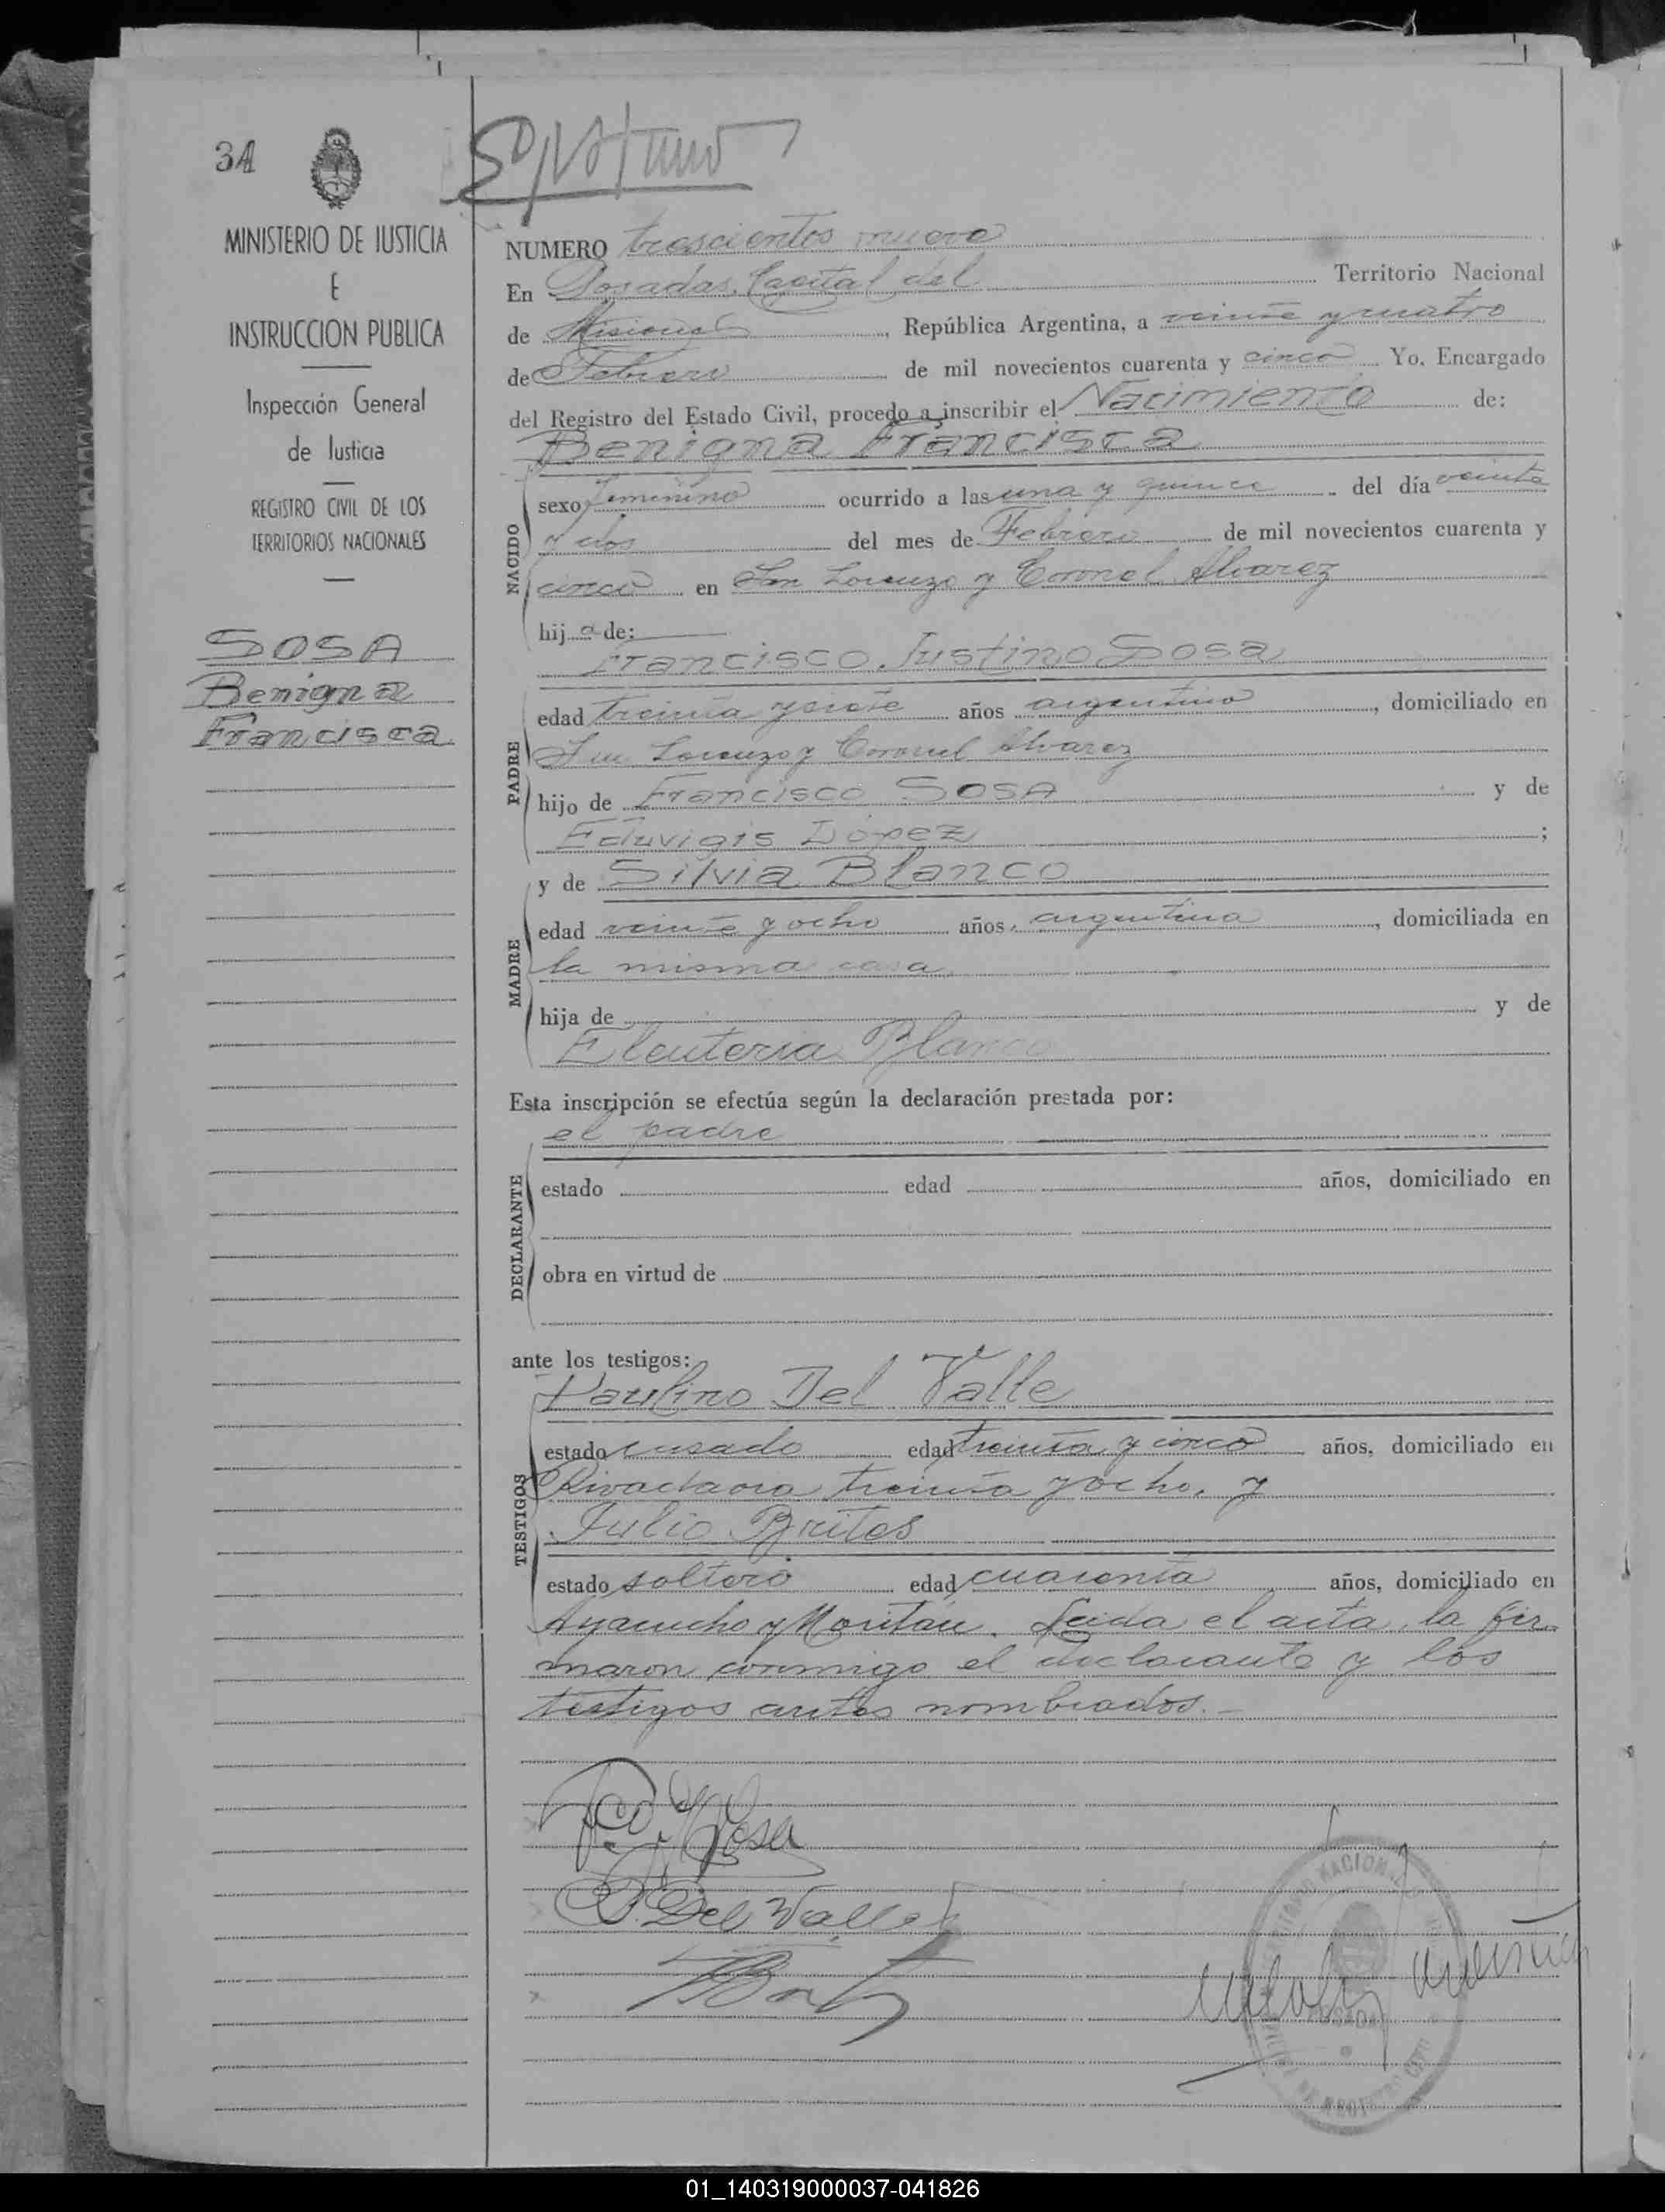 34
MINISTERIO DE JUSTICIA
E
INSTRUCCION PUBLICA
Inspección General
de Justicia
REGISTRO CIVIL DE LOS
TERRITORIOS NACIONALES
SOSA
Benigna
Francisca
NUMERO trescientos nueve
En Posadas, Capital del Territorio Nacional
de Misiones, República Argentina, a veinte y cuatro
de Febrero de mil novecientos cuarenta y cinco Yo, Encargado
del Registro del Estado Civil, procedo a inscribir el Nacimiento de:
Benigna Francisca
NACIDO
sexo femenino ocurrido a las una y quince del día veinte
y dos del mes de Febrero de mil novecientos cuarenta y
cinco en San Lorenzo y Coronel Alvarez
hija de:
Francisco Justino Sosa
PADRE
edad treinta y siete años argentino, domiciliado en
San Lorenzo y Coronel Alvarez
hijo de Francisco Sosa y de
Eduvigis López;
y de Silvia Blanco
MADRE
edad veinte y ocho años, argentina, domiciliada en
la misma casa
hija de y de
Eleuteria Blanco
Esta inscripción se efectúa según la declaración prestada por:
el padre
DECLARANTE
estado edad años, domiciliado en
obra en virtud de
ante los testigos:
Paulino Del Valle
TESTIGOS
estado casado edad treinta y cinco años, domiciliado en
Rivadavia treinta y ocho, y
Julio Brites
estado soltero edad cuarenta años, domiciliado en
Ayacucho y Moritán. Leida el acta, la fir-
maron conmigo el declarante y los
testigos antes nombrados.-
Fco. J. Sosa
P. Del Valle
POSADAS
01_140319000037-041826